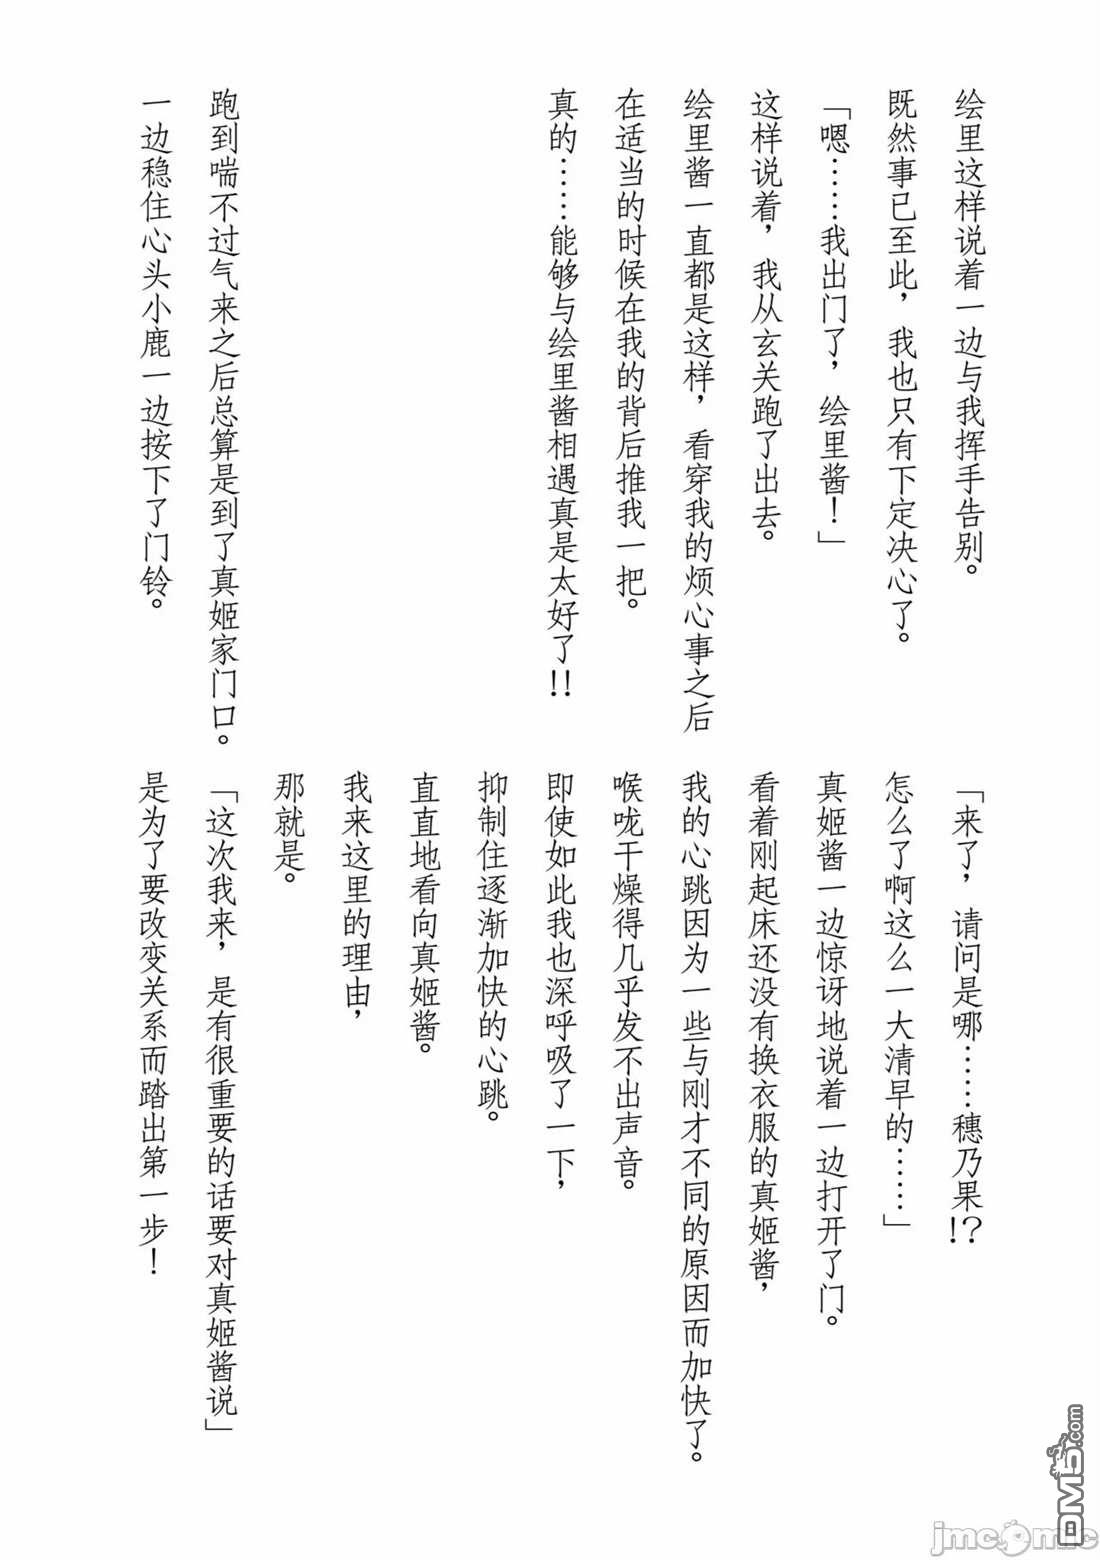 绘里这样说着一边与我挥手告别。
既然事已至此，我也只有下定决心了。
「嗯……我出门了，绘里酱！」
这样说着，我从玄关跑了出去。
绘里酱一直都是这样，看穿我的烦心事之后
在适当的时候在我的背后推我一把。
真的……能够与绘里酱相遇真是太好了!!
跑到喘不过气来之后总算是到了真姬家门口。
一边稳住心头小鹿一边按下了门铃。
「来了，请问是哪……穗乃果!?
怎么了啊这么一大清早的……」
真姬酱一边惊讶地说着一边打开了门。
看着刚起床还没有换衣服的真姬酱，
我的心跳因为一些与刚才不同的原因而加快了。
喉咙干燥得几乎发不出声音。
即使如此我也深呼吸了一下，
抑制住逐渐加快的心跳。
直直地看向真姬酱。
我来这里的理由，
那就是。
「这次我来，是有很重要的话要对真姬酱说」
是为了要改变关系而踏出第一步！
DM5.com
jmcomic